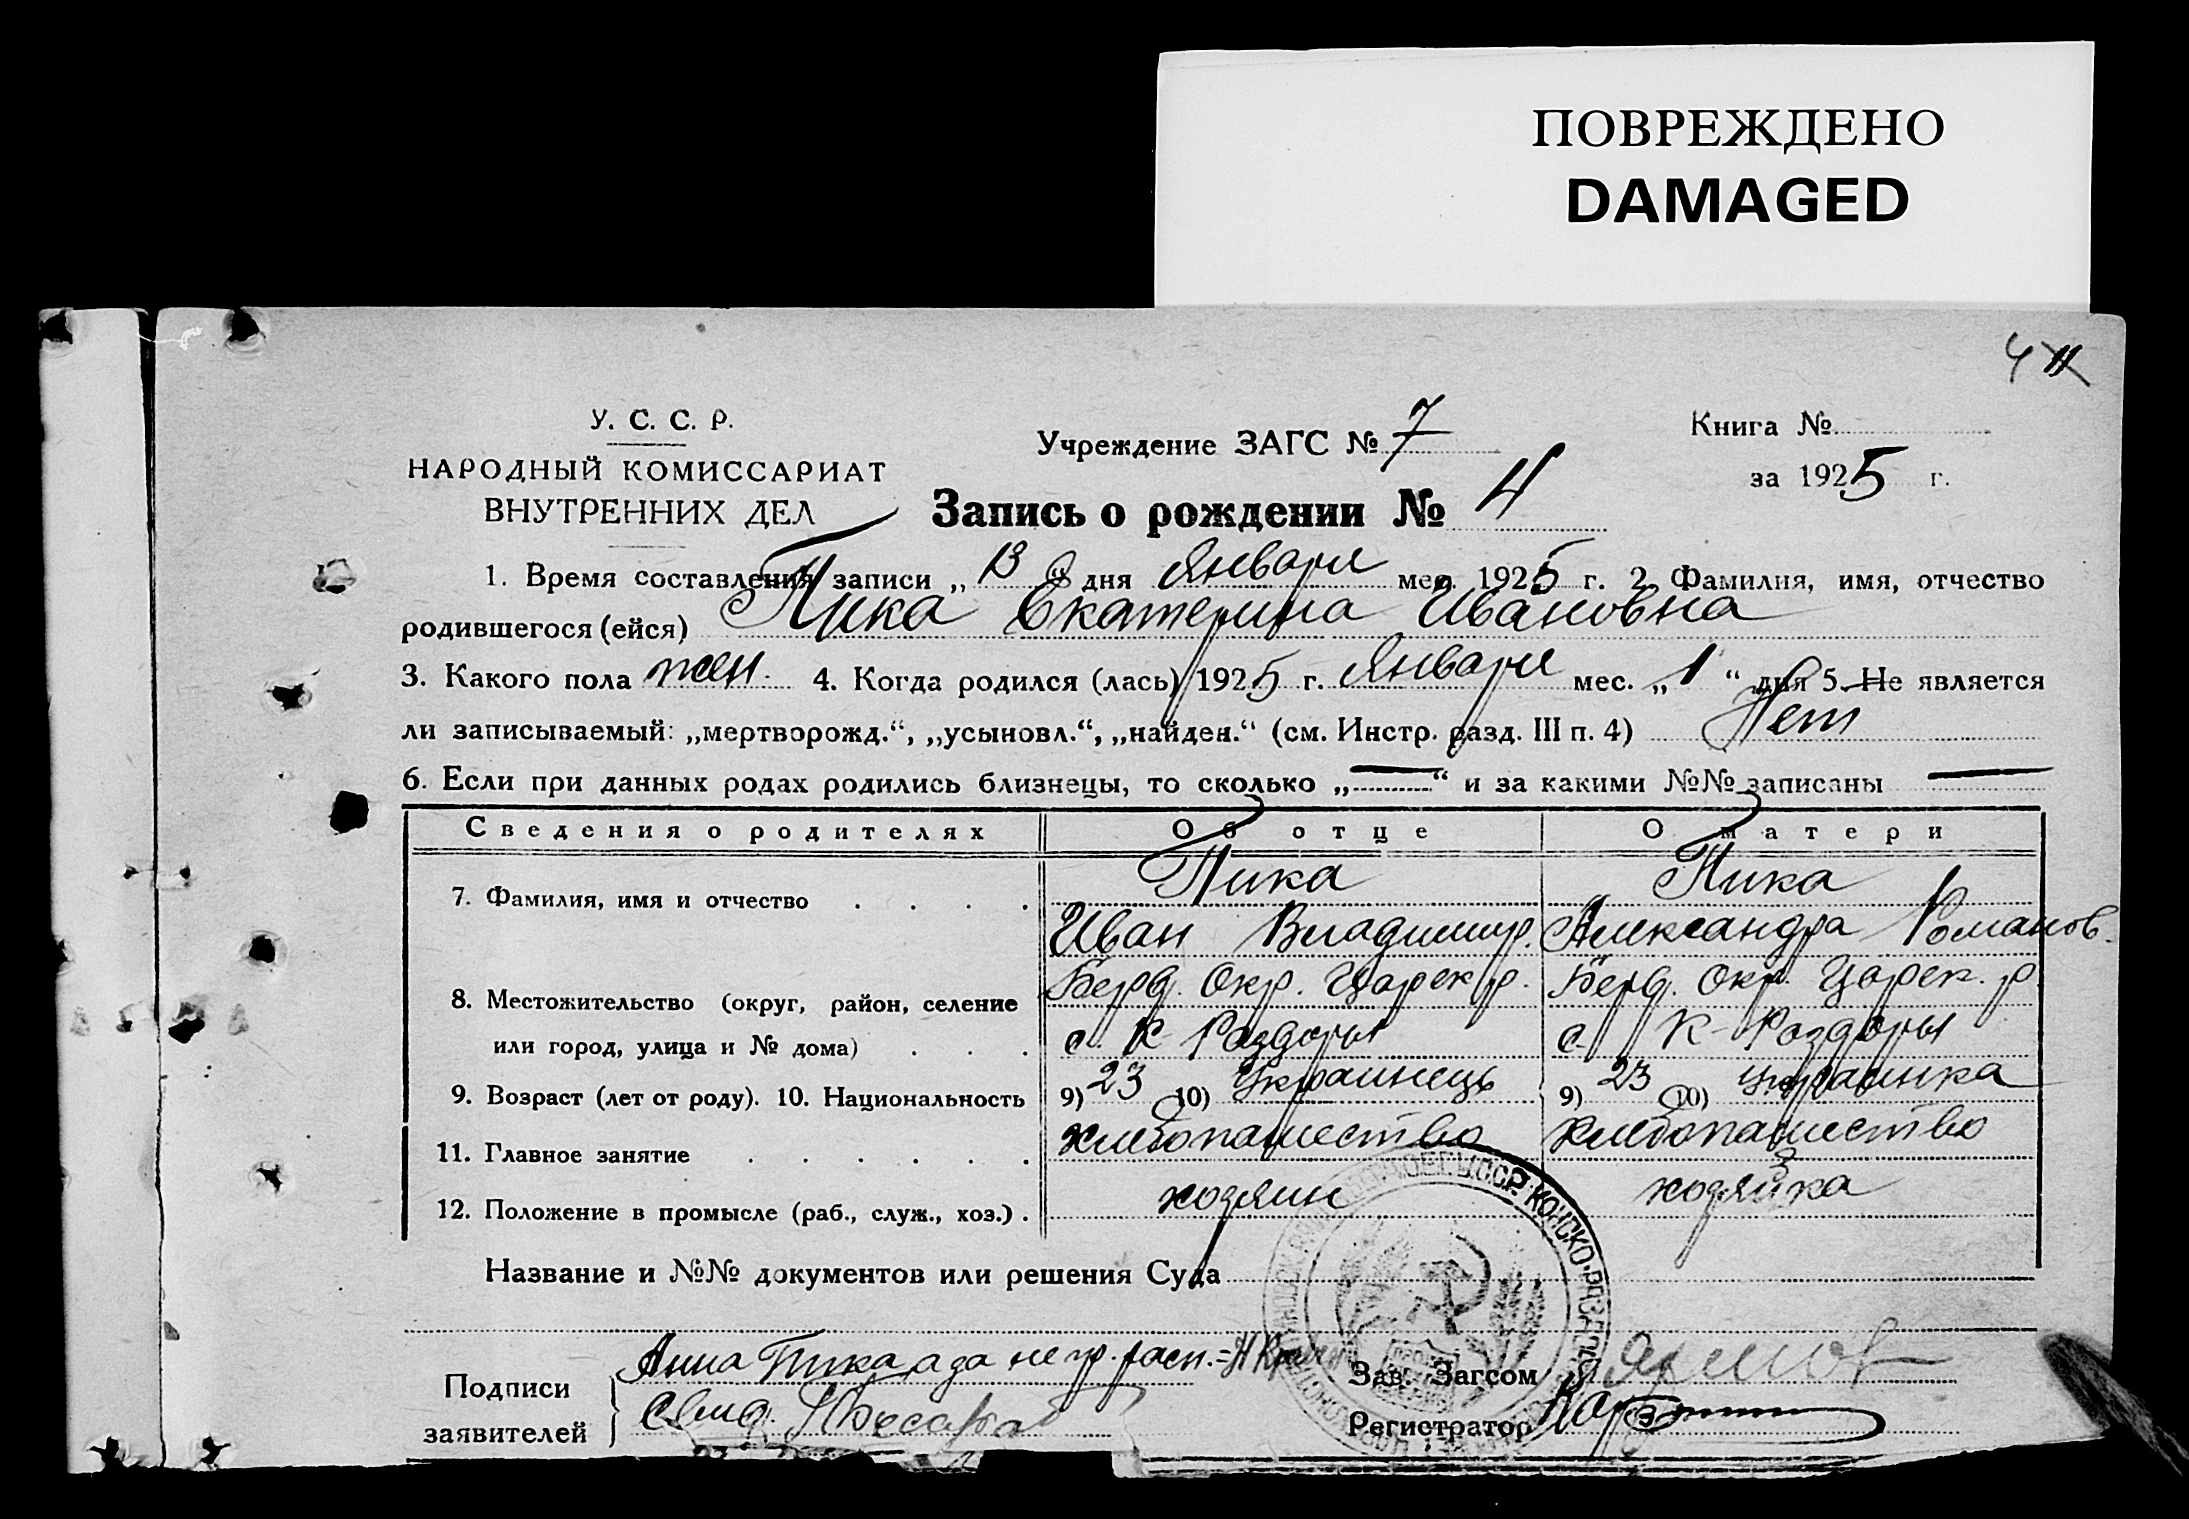 ПОВРЕЖДЕНО
DAMAGED
4 11
У. С. С. Р.
НАРОДНЫЙ КОМИССАРИАТ
ВНУТРЕННИХ ДЕЛ
Учреждение ЗАГС № 7
Книга №
за 1925 г.
Запись о рождении № 4
1. Время составления записи „13“ дня Января мес. 1925 г. 2. Фамилия, имя, отчество
родившегося (ейся) Пика Екатерина Ивановна
3. Какого пола жен. 4. Когда родился (лась) 1925 г. Января мес. „1“ дня 5. Не является
ли записываемый: „мертворожд.“, „усыновл.“, „найден.“ (см. Инстр. разд. III п. 4) Нет
6. Если при данных родах родились близнецы, то сколько „—“ и за какими №№ записаны —
Сведения о родителях Об отце О матери
7. Фамилия, имя и отчество . . . . Пика Пика
Иван Владимир. Александра Романов.
8. Местожительство (округ, район, селение Берд. Окр. Царек. р. Берд. Окр. Царек. р.
или город, улица и № дома) . . . с. К-Раздоры с. К-Раздоры
9. Возраст (лет от роду). 10. Национальность 9) 23 10) Украинець 9) 23 10) Украинка
11. Главное занятие . . . . . . хлебопашество хлебопашество
12. Положение в промысле (раб., служ., хоз.) . хозяин хозяйка
Название и №№ документов или решения Суда
Подписи заявителей
Анна Пика, а за негр. расп.
Свид.
Зав. Загсом
Регистратор
У.С.С.Р. КОНСКО-РАЗДОР